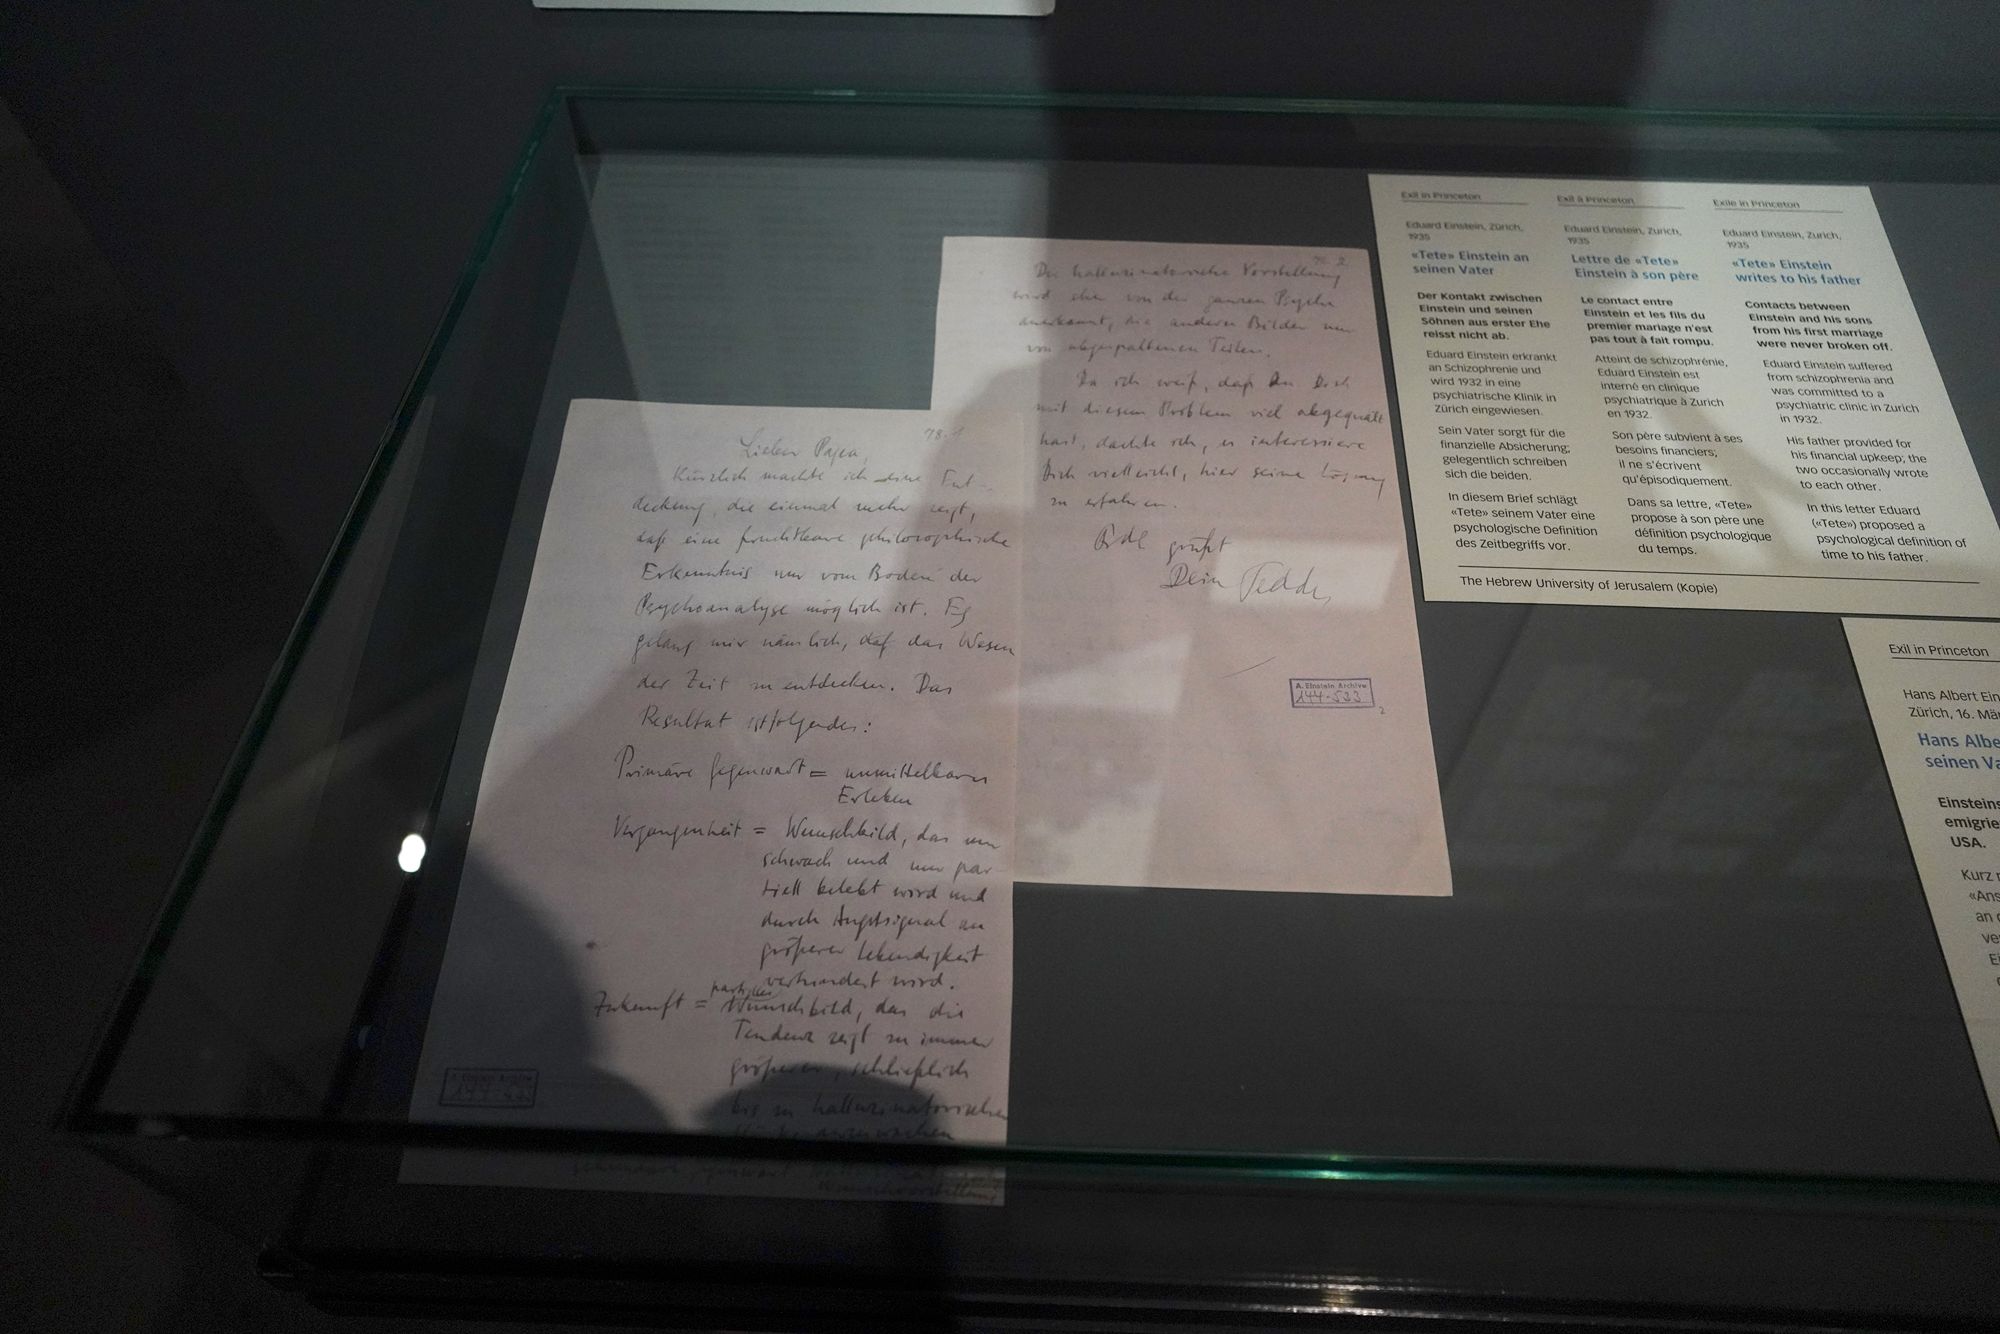 78.1
Lieber Papa,
Kürzlich machte ich eine Ent-
deckung, die einmal mehr zeigt,
daß eine fruchtbare philosophische
Erkenntnis nur vom Boden der
Psychoanalyse möglich ist. Es
gelang mir nämlich, das Wesen
der Zeit zu entdecken. Das
Resultat ist folgendes:
Primäre Gegenwart = unmittelbares
Erleben
Vergangenheit = Wunschbild, das nur
schwach und nur par-
tiell belebt wird und
durch Angstsignal an
größerer Lebendigkeit
verhindert wird.
partielles
Zukunft = Wunschbild, das die
Tendenz zeigt zu immer
größerer, schließlich
bis zu halluzinatorischer
Wunschvorstellung
A. Einstein Archive
78.2
Die halluzinatorische Vorstellung
wird eher von der ganzen Psyche
anerkannt, die anderen Bilder nur
von abgespaltenen Teilen.
Da ich weiß, daß Du Dich
mit diesem Problem viel abgequält
hast, dachte ich, es interessiere
Dich vielleicht, hier seine Lösung
zu erfahren.
grüßt
Dein Teddy
A. Einstein Archive
144-533
2
Exil in Princeton
Eduard Einstein, Zürich,
1935
«Tete» Einstein an
seinen Vater
Der Kontakt zwischen
Einstein und seinen
Söhnen aus erster Ehe
reisst nicht ab.
Eduard Einstein erkrankt
an Schizophrenie und
wird 1932 in eine
psychiatrische Klinik in
Zürich eingewiesen.
Sein Vater sorgt für die
finanzielle Absicherung;
gelegentlich schreiben
sich die beiden.
In diesem Brief schlägt
«Tete» seinem Vater eine
psychologische Definition
des Zeitbegriffs vor.
Exil à Princeton
Eduard Einstein, Zurich,
1935
Lettre de «Tete»
Einstein à son père
Le contact entre
Einstein et les fils du
premier mariage n'est
pas tout à fait rompu.
Atteint de schizophrénie,
Eduard Einstein est
interné en clinique
psychiatrique à Zurich
en 1932.
Son père subvient à ses
besoins financiers;
il ne s'écrivent
qu'épisodiquement.
Dans sa lettre, «Tete»
propose à son père une
définition psychologique
du temps.
Exile in Princeton
Eduard Einstein, Zurich,
1935
«Tete» Einstein
writes to his father
Contacts between
Einstein and his sons
from his first marriage
were never broken off.
Eduard Einstein suffered
from schizophrenia and
was committed to a
psychiatric clinic in Zurich
in 1932.
His father provided for
his financial upkeep; the
two occasionally wrote
to each other.
In this letter Eduard
(«Tete») proposed a
psychological definition of
time to his father.
The Hebrew University of Jerusalem (Kopie)
Exil in Princeton
Hans Albert Ein
Zürich, 16. Mä
Hans Albe
seinen Va
Einsteins
emigrie
USA.
Kurz
«Ans
an
ve